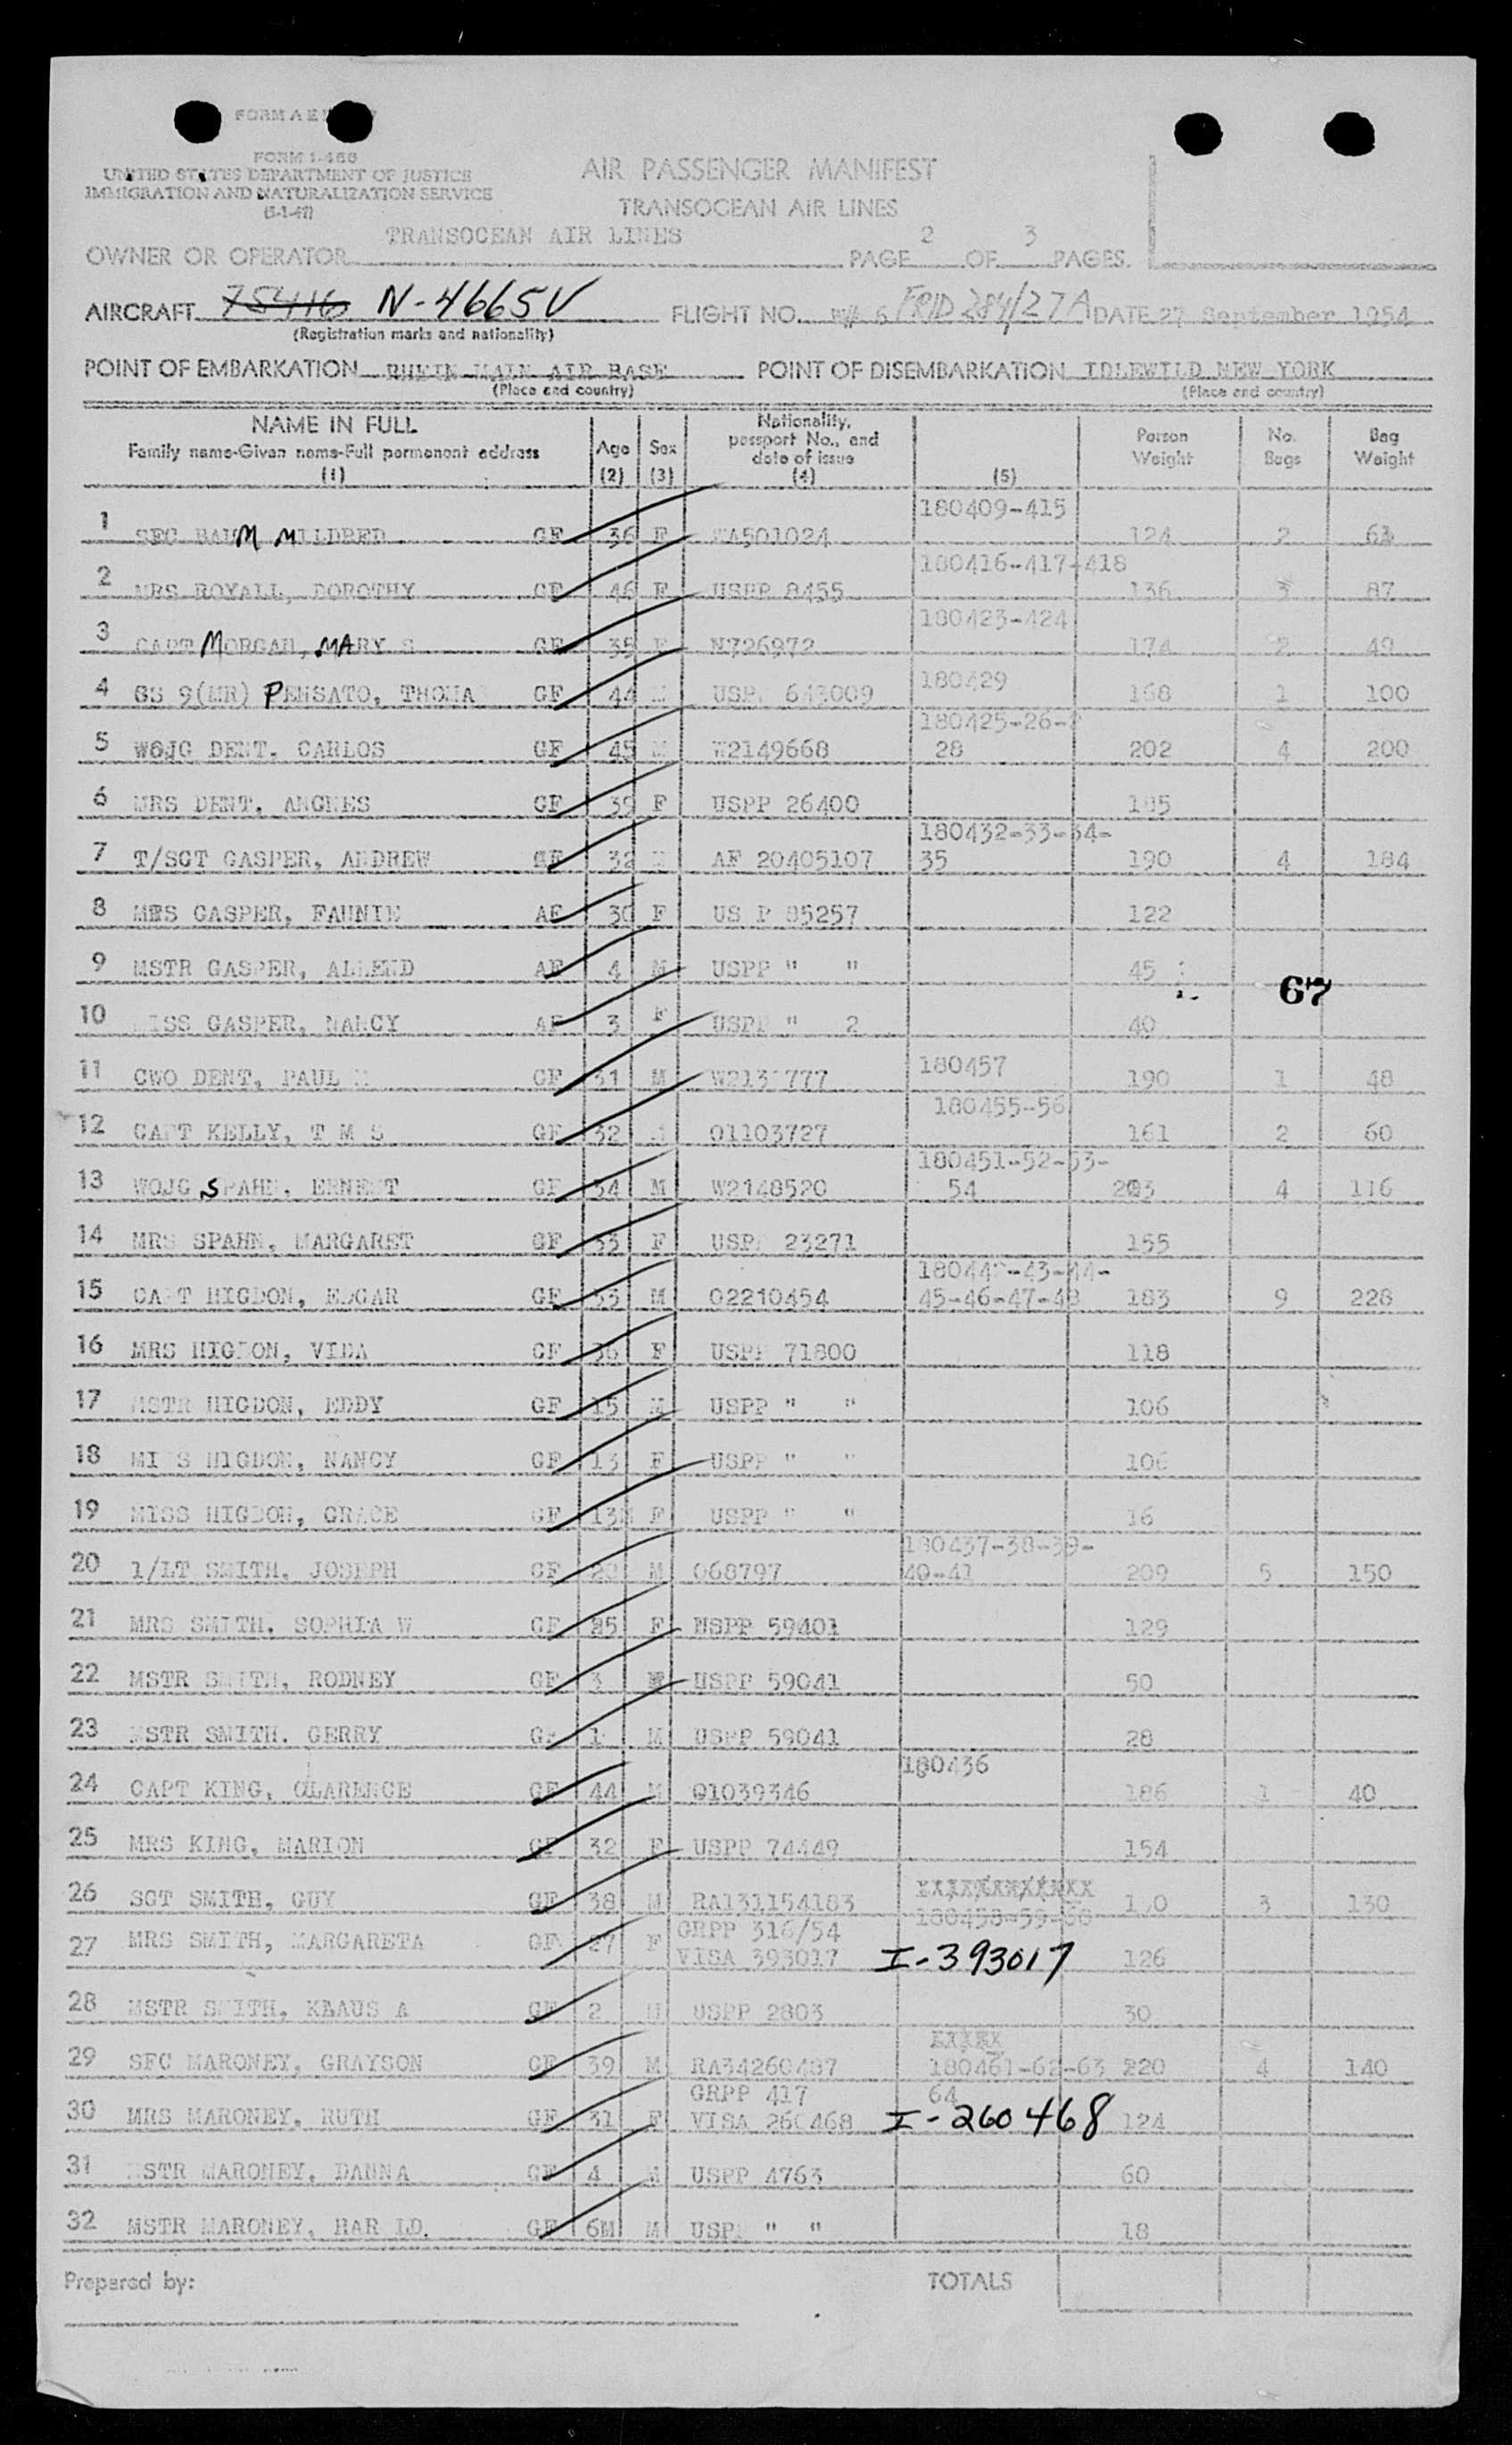 FORM A E
FORM I-466
UNITED STATES DEPARTMENT OF JUSTICE
IMMIGRATION AND NATURALIZATION SERVICE
(5-1-47)
AIR PASSENGER MANIFEST
TRANSOCEAN AIR LINES
OWNER OR OPERATOR TRANSOCEAN AIR LINES PAGE 2 OF 3 PAGES.
AIRCRAFT 75416 N-4665V FLIGHT NO. FRID 284/27A DATE 27 September 1954
(Registration marks and nationality)
POINT OF EMBARKATION RHEIN MAIN AIR BASE POINT OF DISEMBARKATION IDLEWILD NEW YORK
(Place and country) (Place and country)
NAME IN FULL Family name-Given name-Full permanent address (1) Age (2) Sex (3) Nationality, passport No., and date of issue (4) (5) Person Weight No. Bags Bag Weight
1 SFC BAUM MILDRED GF 36 F A501024 180409-415 124 2
2 MRS ROYALL, DOROTHY GF 46 F USPP 8455 180416-417-418 136 3 87
3 CAPT MORGAN, MARY S GF 35 F N726972 180423-424 174 2 49
4 GS 9(MR) PENSATO, THOMA GF 44 M USP 643009 180429 168 1 100
5 WOJG DENT, CARLOS GF 45 M W2149668 180425-26- 28 202 4 200
6 MRS DENT, ANGNES GF 39 F USPP 26400 185
7 T/SGT GASPER, ANDREW GF 32 M AF 20405107 180432-33-34-35 190 4 184
8 MRS GASPER, FANNIE AF 30 F US P 85257 122
9 MSTR GASPER, ALLEND AF 4 M USPP " " 45
67
10 MISS GASPER, NANCY AF 3 F USPP " 2 40
11 CWO DENT, PAUL GF 31 M 180457 190 1 48
12 CAPT KELLY, T M S GF 32 M O1103727 180455-56 161 2 60
13 WOJG SPAHN, ERNEST GF 34 M W2148520 180451-52-53-54 203 4 116
14 MRS SPAHN, MARGARET GF 33 F USPP 23271 155
15 CAPT HIGDON, EDGAR GF 33 M O2210454 180442-43-44-45-46-47-48 183 9 228
16 MRS HIGDON, VIDA GF 36 F USPP 71800 118
17 MSTR HIGDON, EDDY GF 15 M USPP " " 106
18 MISS HIGDON, NANCY GF 13 F USPP " " 106
19 MISS HIGDON, GRACE GF 13M F USPP " " 16
20 1/LT SMITH, JOSEPH GF 28 M 068797 180437-38-39-40-41 209 5 150
21 MRS SMITH, SOPHIA W GF 25 F USPP 59401 129
22 MSTR SMITH, RODNEY GF 3 M USPP 59041 50
23 MSTR SMITH. GERRY GF 1 M USPP 59041 28
24 CAPT KING, CLARENCE GF 44 M O1039346 180436 186 1 40
25 MRS KING, MARION GF 32 F USPP 74449 154
26 SGT SMITH, GUY GF 38 M RA131154183 180458-59-60 3 130
27 MRS SMITH, MARGARETA GF 27 F GRPP 316/54 VISA 393017 I-393017 126
28 MSTR SMITH, KLAUS A GF 2 M USPP 2803 30
29 SFC MARONEY, GRAYSON GF 39 M RA34260487 180461-62-63 64 220 4 140
30 MRS MARONEY, RUTH GF 31 F GRPP 417 VISA 260468 I-260468 124
31 MSTR MARONEY, DANNA GF 4 M USPP 4763 60
32 MSTR MARONEY, HAR LD. GF 6M M USPP " " 18
Prepared by: TOTALS